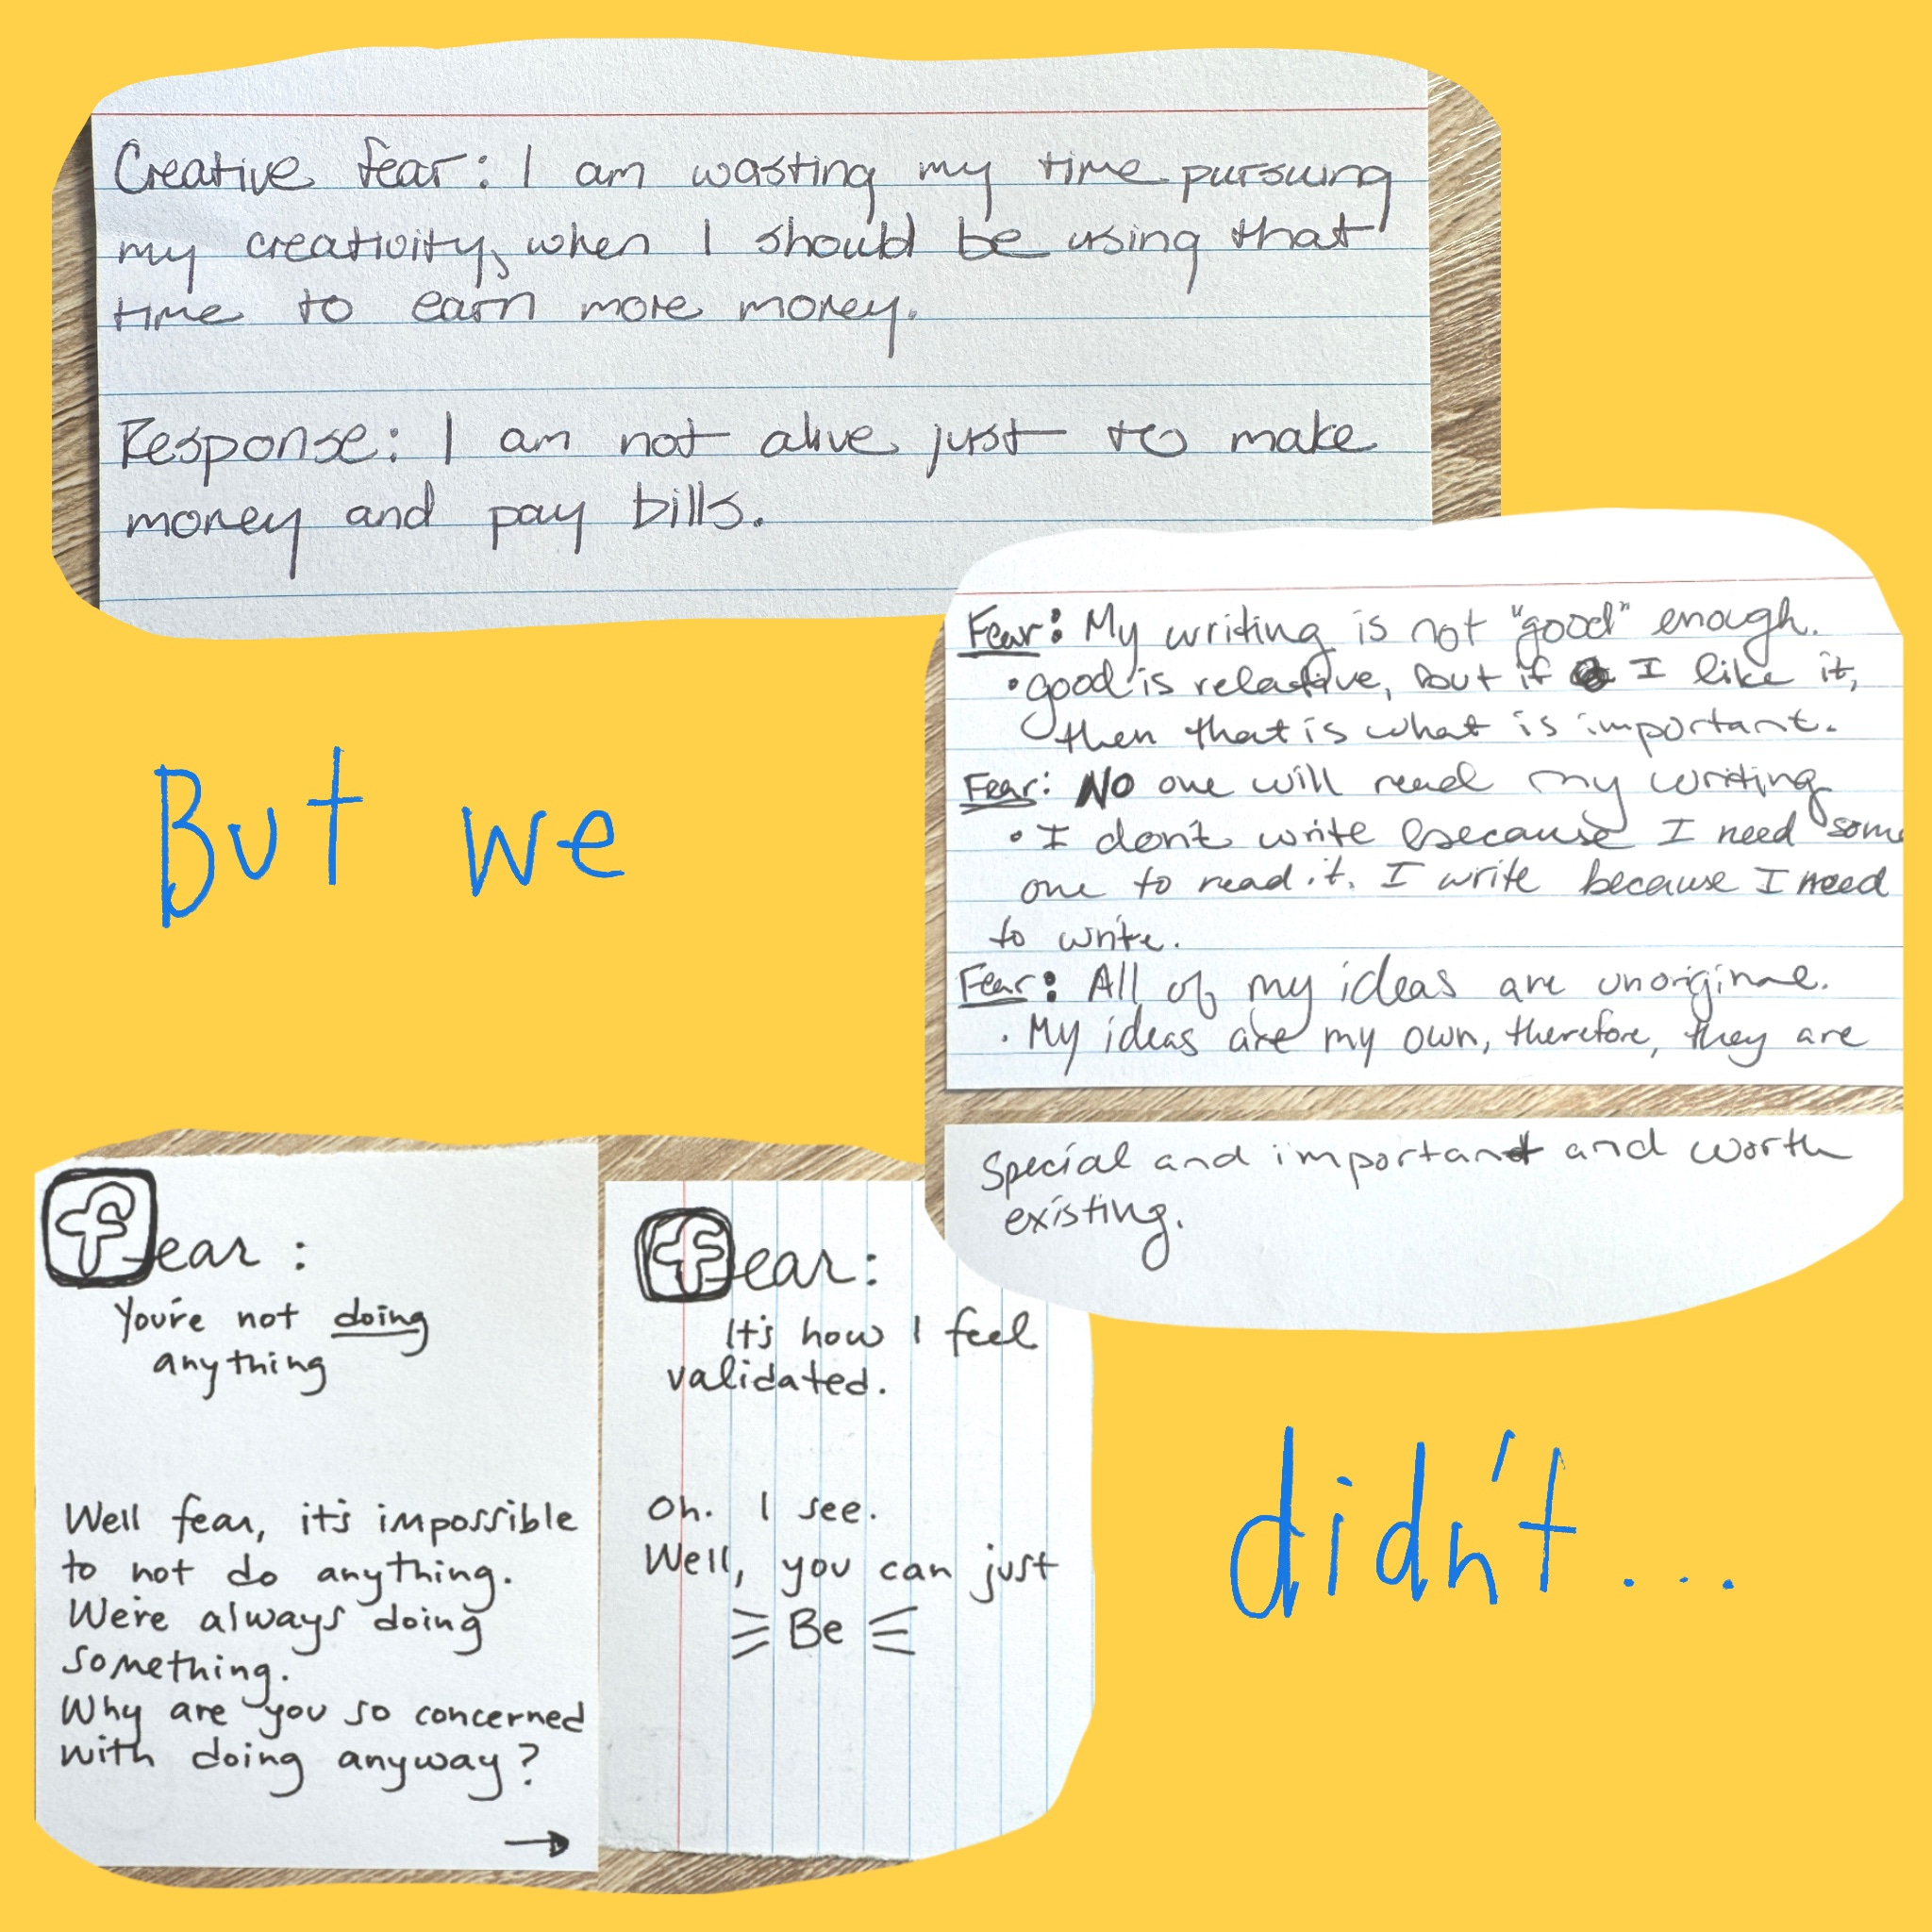 Creative fear: I am wasting my time pursuing
my creativity, when I should be using that
time to earn more money.
Response: I am not alive just to make
money and pay bills.
But we
Fear: My writing is not "good" enough.
• good is relative, but if I like it,
then that is what is important.
Fear: No one will read my writing
• I don't write because I need some
one to read it. I write because I need
to write.
Fear: All of my ideas are unoriginal.
• My ideas are my own, therefore, they are
Special and important and worth
existing.
fear:
You're not doing
anything
Well fear, it's impossible
to not do anything.
We're always doing
something.
Why are you so concerned
with doing anyway?
fear:
It's how I feel
validated.
Oh. I see.
Well, you can just
Be
didn't...